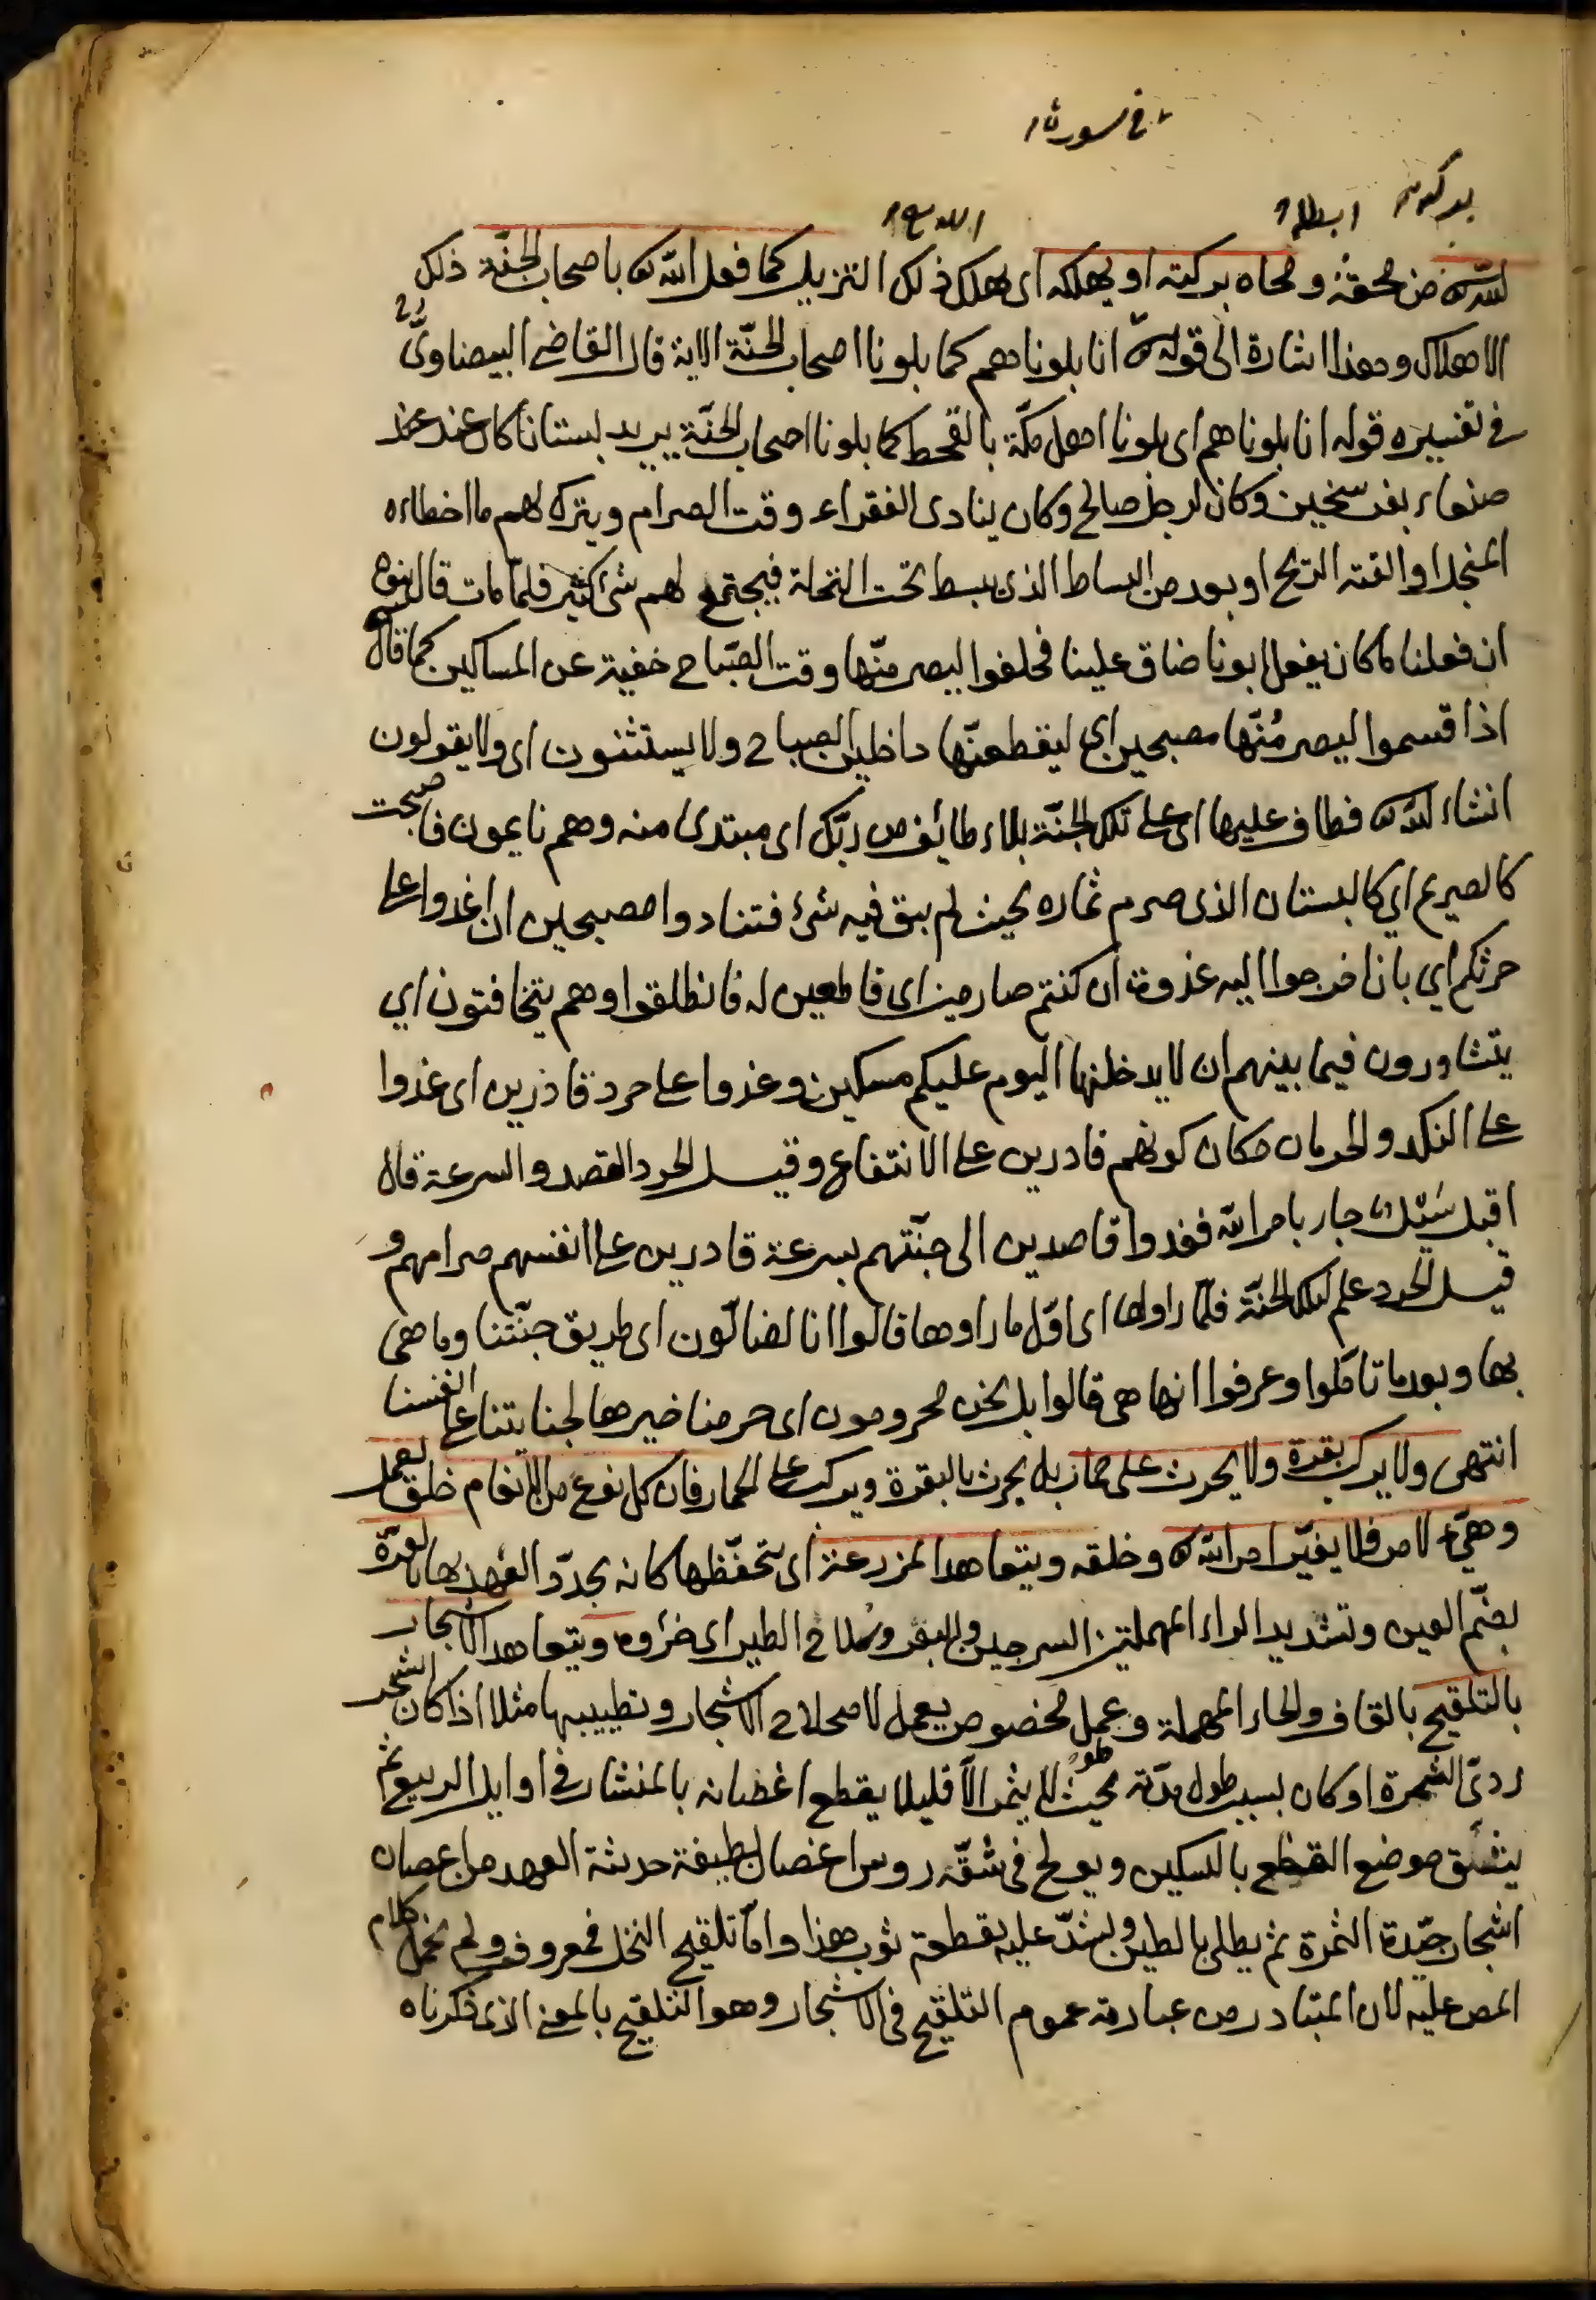 في سورة
ابطله
الله من محقه ومحاه بركته او يهلكه اى يهلك ذلك التنزيل كما فعل الله تع باصحاب الجنّة ذلك
الاهلاك وهذا اشارة الى قوله تع انا بلوناهم كما بلونا اصحاب الجنّة الاية قال القاضى البيضاوىّ
فى تفسيره قوله انا بلوناهم اى بلونا اهل مكّة بالقحط كما بلونا اصحاب الجنّة يريد بستانا كان عند
صنعاء بفرسخين وكان لرجل صالح وكان ينادى الفقراء وقت الصرام ويترك لهم ما اخطاءه
المنجل او القته الريح او بعد من البساط الذى يبسط تحت النخلة فيجتمع لهم شئ كثير فلمّا مات قال بنوه
ان فعلنا ما كان يفعل ابونا ضاق علينا فحلفوا ليصرمنّها وقت الصّباح خفية عن المساكين كما قال
اذا قسموا ليصرمُنّها مصبحين اي ليقطعنّها داخلين الصباح ولا يستثنون اى ولا يقولون
انشاء الله تع فطاف عليها اى على تلك الجنّة بلاء طائف من ربّك اى مبتدئ منه وهم نايمون فاصبحت
كالصريم اي كالبستان الذى صرم ثماره بحيث لم يبق فيه شئ فتنادوا مصبحين ان اغدوا على
حرثكم اي بان اخرجوا اليه غدوة ان كنتم صارمين اى قاطعين له فانطلقوا وهم يتخافتون اي
يتشاورون فيما بينهم ان لا يدخلنها اليوم عليكم مسكين وغدوا على حرد قادرين اى غدوا
على النكد والحرمان مكان كونهم قادرين على الانتفاع وقيل الحرد القصد والسرعة قال
اقبل سَيْل جار بامر الله فغدوا قاصدين الى جنّتهم بسرعة قادرين على انفسهم صرامهم و
قيل الحرد علم لتلك الجنّة فلمّا راوها اى اوّل ما راوها قالوا انا لضالّون اى طريق جنّتنا وما هى
بها وبعد ما تامّلوا وعرفوا انها هى قالوا بل نحن محرومون اى حرمنا خيرها لجنايتنا على انفسنا
انتهى ولا يركب بقرة ولا يحرث على حمار بل يحرث بالبقرة ويركب على الحمار فان كل نوع من الانعام خلق لعمل
وهيّء لامر فلا يغيّر امر الله تع وخلقه ويتعاهد المزرعة اى يتحفّظها كانه يجدّد العهد بها بالعرّة
بضمّ العين وتشديد الراء المهملتين السرجين والبعر وسلاح الطير اى خرؤه ويتعاهد الاشجار
بالتلقيح بالقاف والحاء المهملة وعمل مخصوص يعمل لاصلاح الاشجار وتطييبها مثلا اذا كان الشجر
ردىّ الثمرة او كان بسبب طول مدّته بحيث لا يثمر الّا قليلا يقطع اغصانه بالمنشار فى اوايل الربيع ثم
يشقّق موضع القطع بالسكين ويولج فى شقّه رؤس اغصان لطيفة حديثة العهد من اغصان
اشجار جيّدة الثمرة ثم يطلى بالطين ويشدّ عليه بقطعة ثوب هذا وامّا تلقيح النخل فمعروف ولم نحمل كلام
المص عليه لان المتبادر من عبارته عموم التلقيح فى الاشجار وهو التلقيح بالمعنى الذى ذكرناه